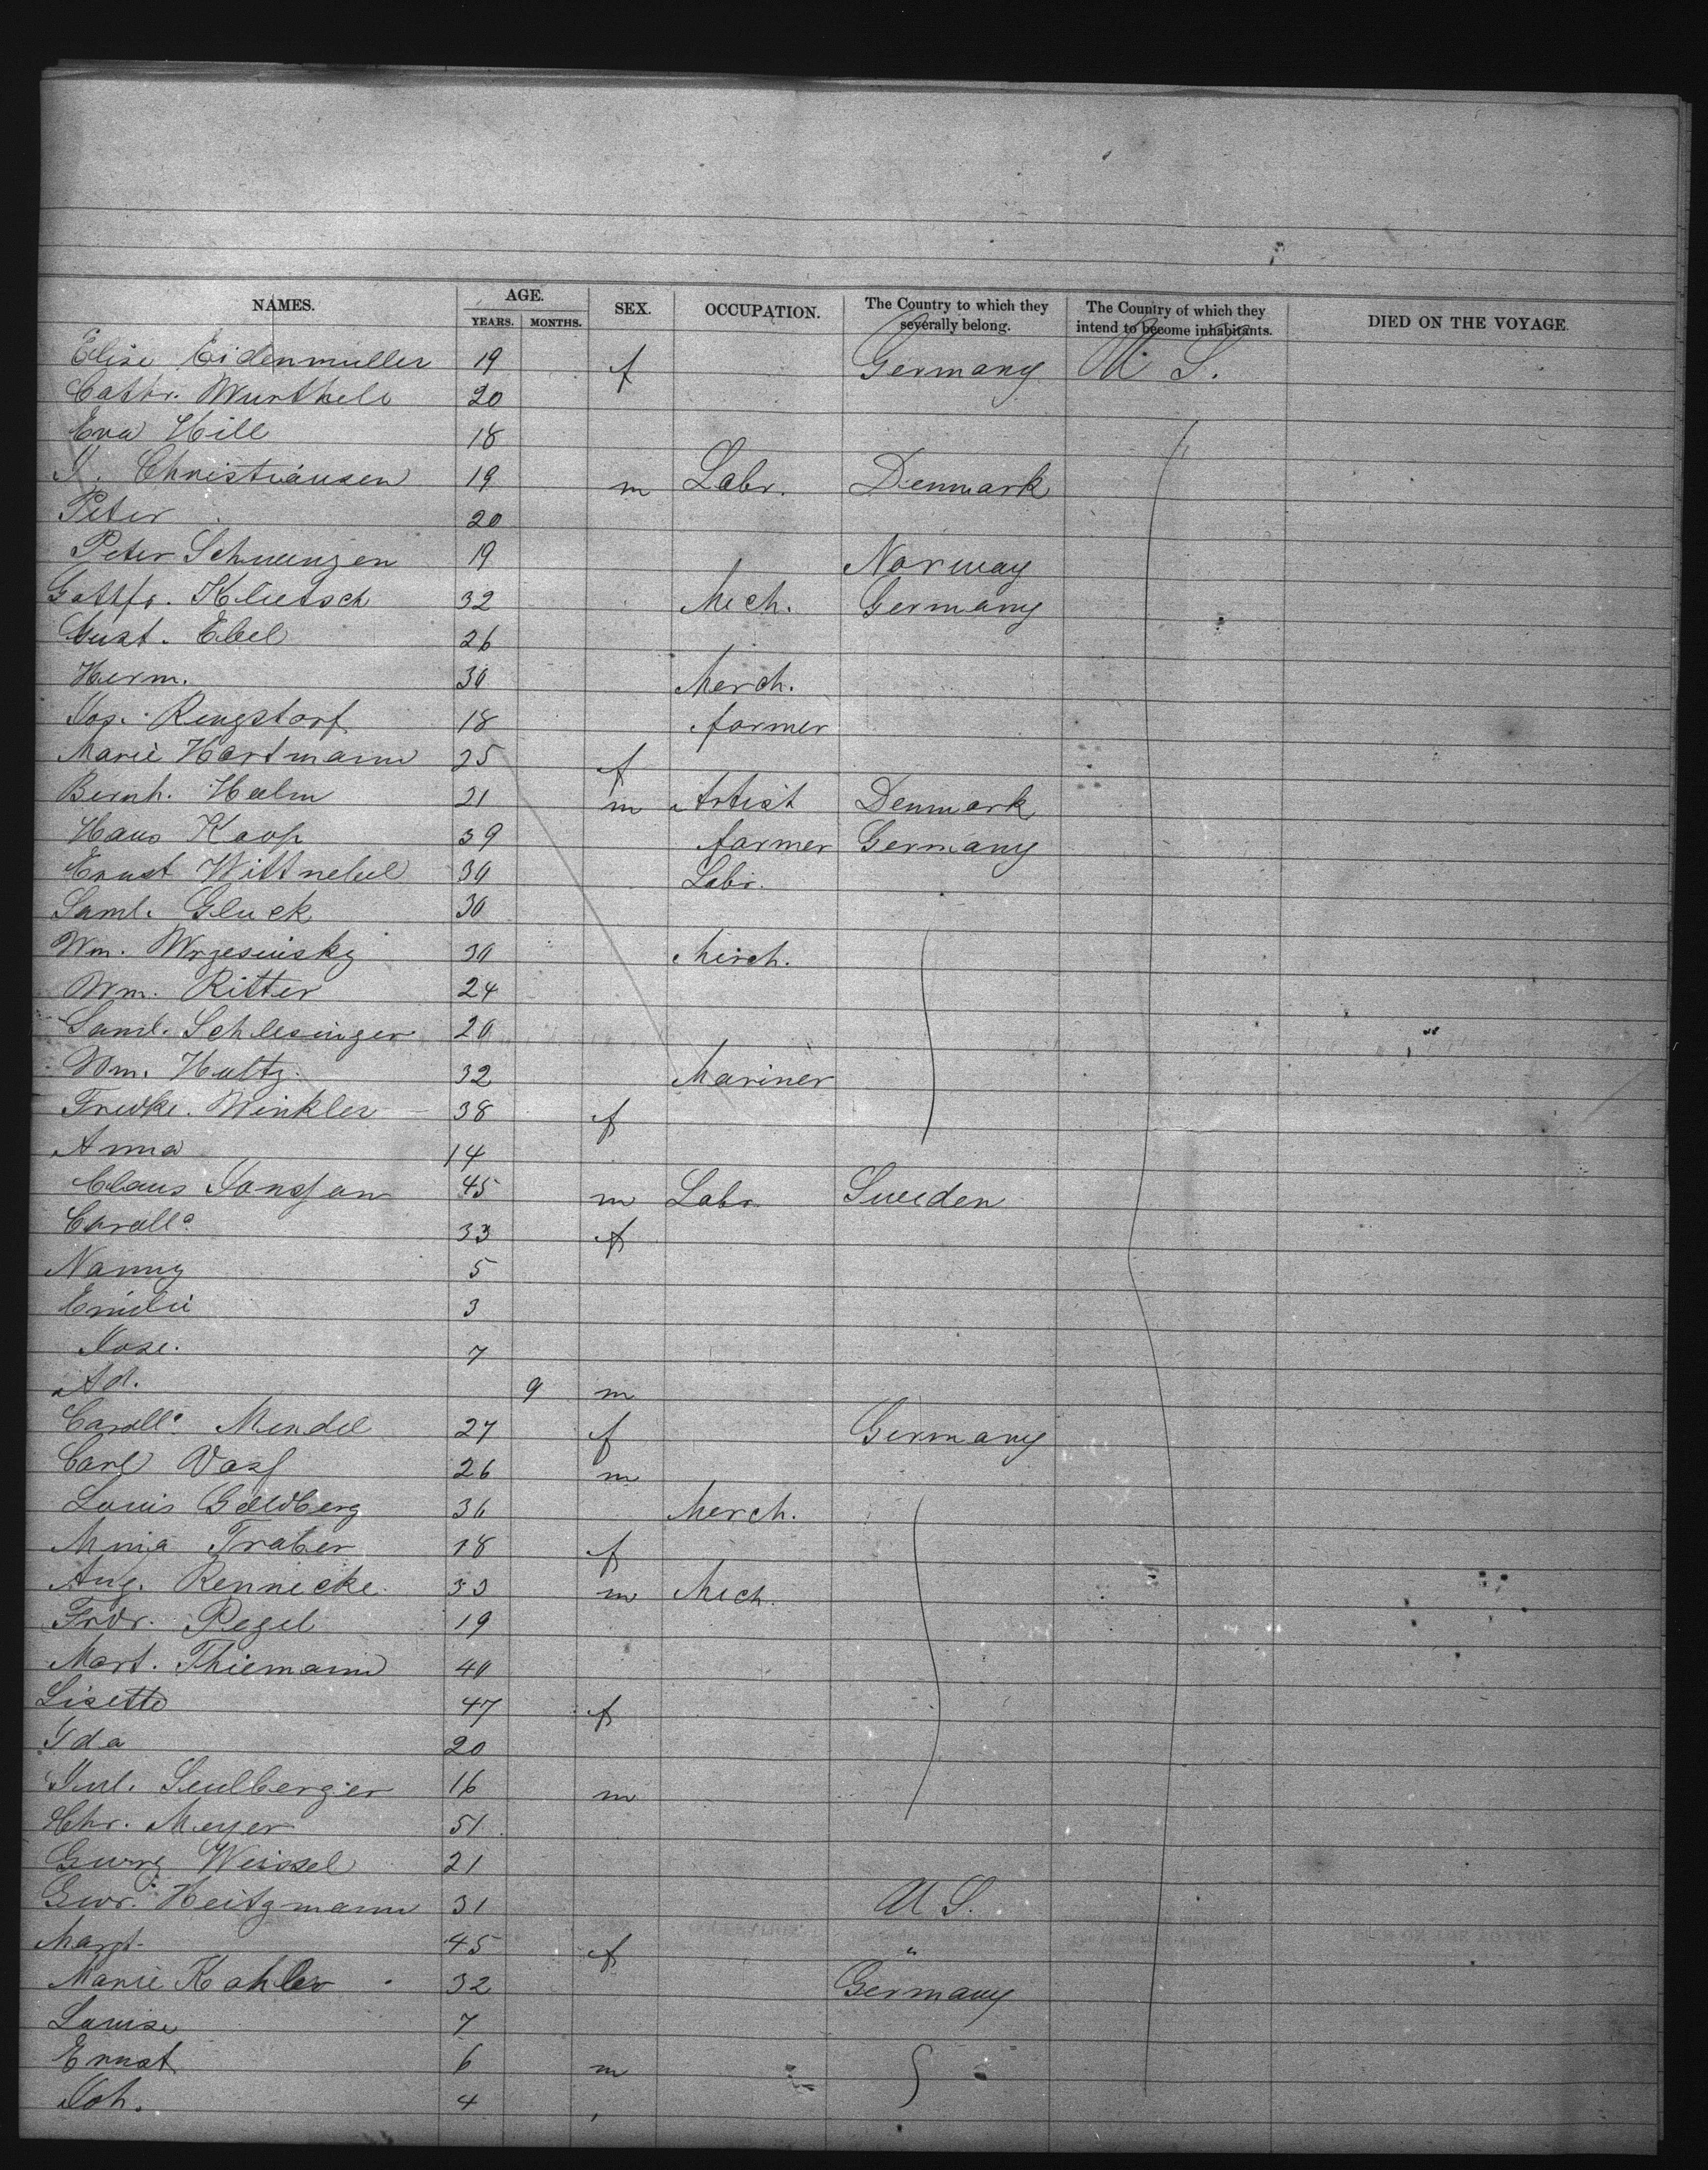 NAMES. AGE. SEX. OCCUPATION. The Country to which they severally belong. The Country of which they intend to become inhabitants. DIED ON THE VOYAGE.
YEARS. MONTHS.
Elise Eidenmuller 19 f Germany U. S.
Cathr. Wurthele 20
Eva Hill 18
Christiansen 19 m Labr. Denmark
Peter 20
Peter Schwenzen 19 Norway
Gottfr. Klietsch 32 Mech. Germany
Gust. Ebel 26
Herm. 30 Merch.
Jos. Ringstorf 18 farmer
Marie Hartmann 25 f
Bernh. Holm 21 m Artist Denmark
Hans Koop 39 farmer Germany
Ernst Wittnebel 30 Labr.
Saml. Gluck 30
Wm. Wrzesinsky 30 Merch.
Wm. Ritter 24
Saml. Schlesinger 20
Wm. Hultz 32 Mariner
Fredke. Winkler 38 f
Anna 14
Claus Jonsson 45 m Labr. Sweden
33 f
Nanny 5
Emilie 3
Jose. 7
Ad. 9 m
Mendel 27 f Germany
Carl Vass 26 m
Louis Goldberg 30 Merch.
Traber 18 f
Aug. Rennecke 33 m Mech.
Frdr. Pegel 19
Mart. Thiemann 40
Lisette 47 f
Ida 20
Jul. Seulberger 16 m
Chr. Meyer 51
Georg Weissel 21
Geor. Heitzmann 31 U S.
Margt. 45 f "
Marie Kohler 32 Germany
Louise 7
Ernst 6 m
Joh. 4